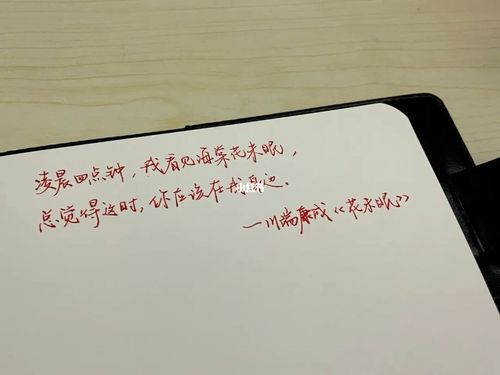 凌晨四点钟，我看见海棠花未眠，
总觉得这时，你应该在我身边。
一川端康成《花未眠》